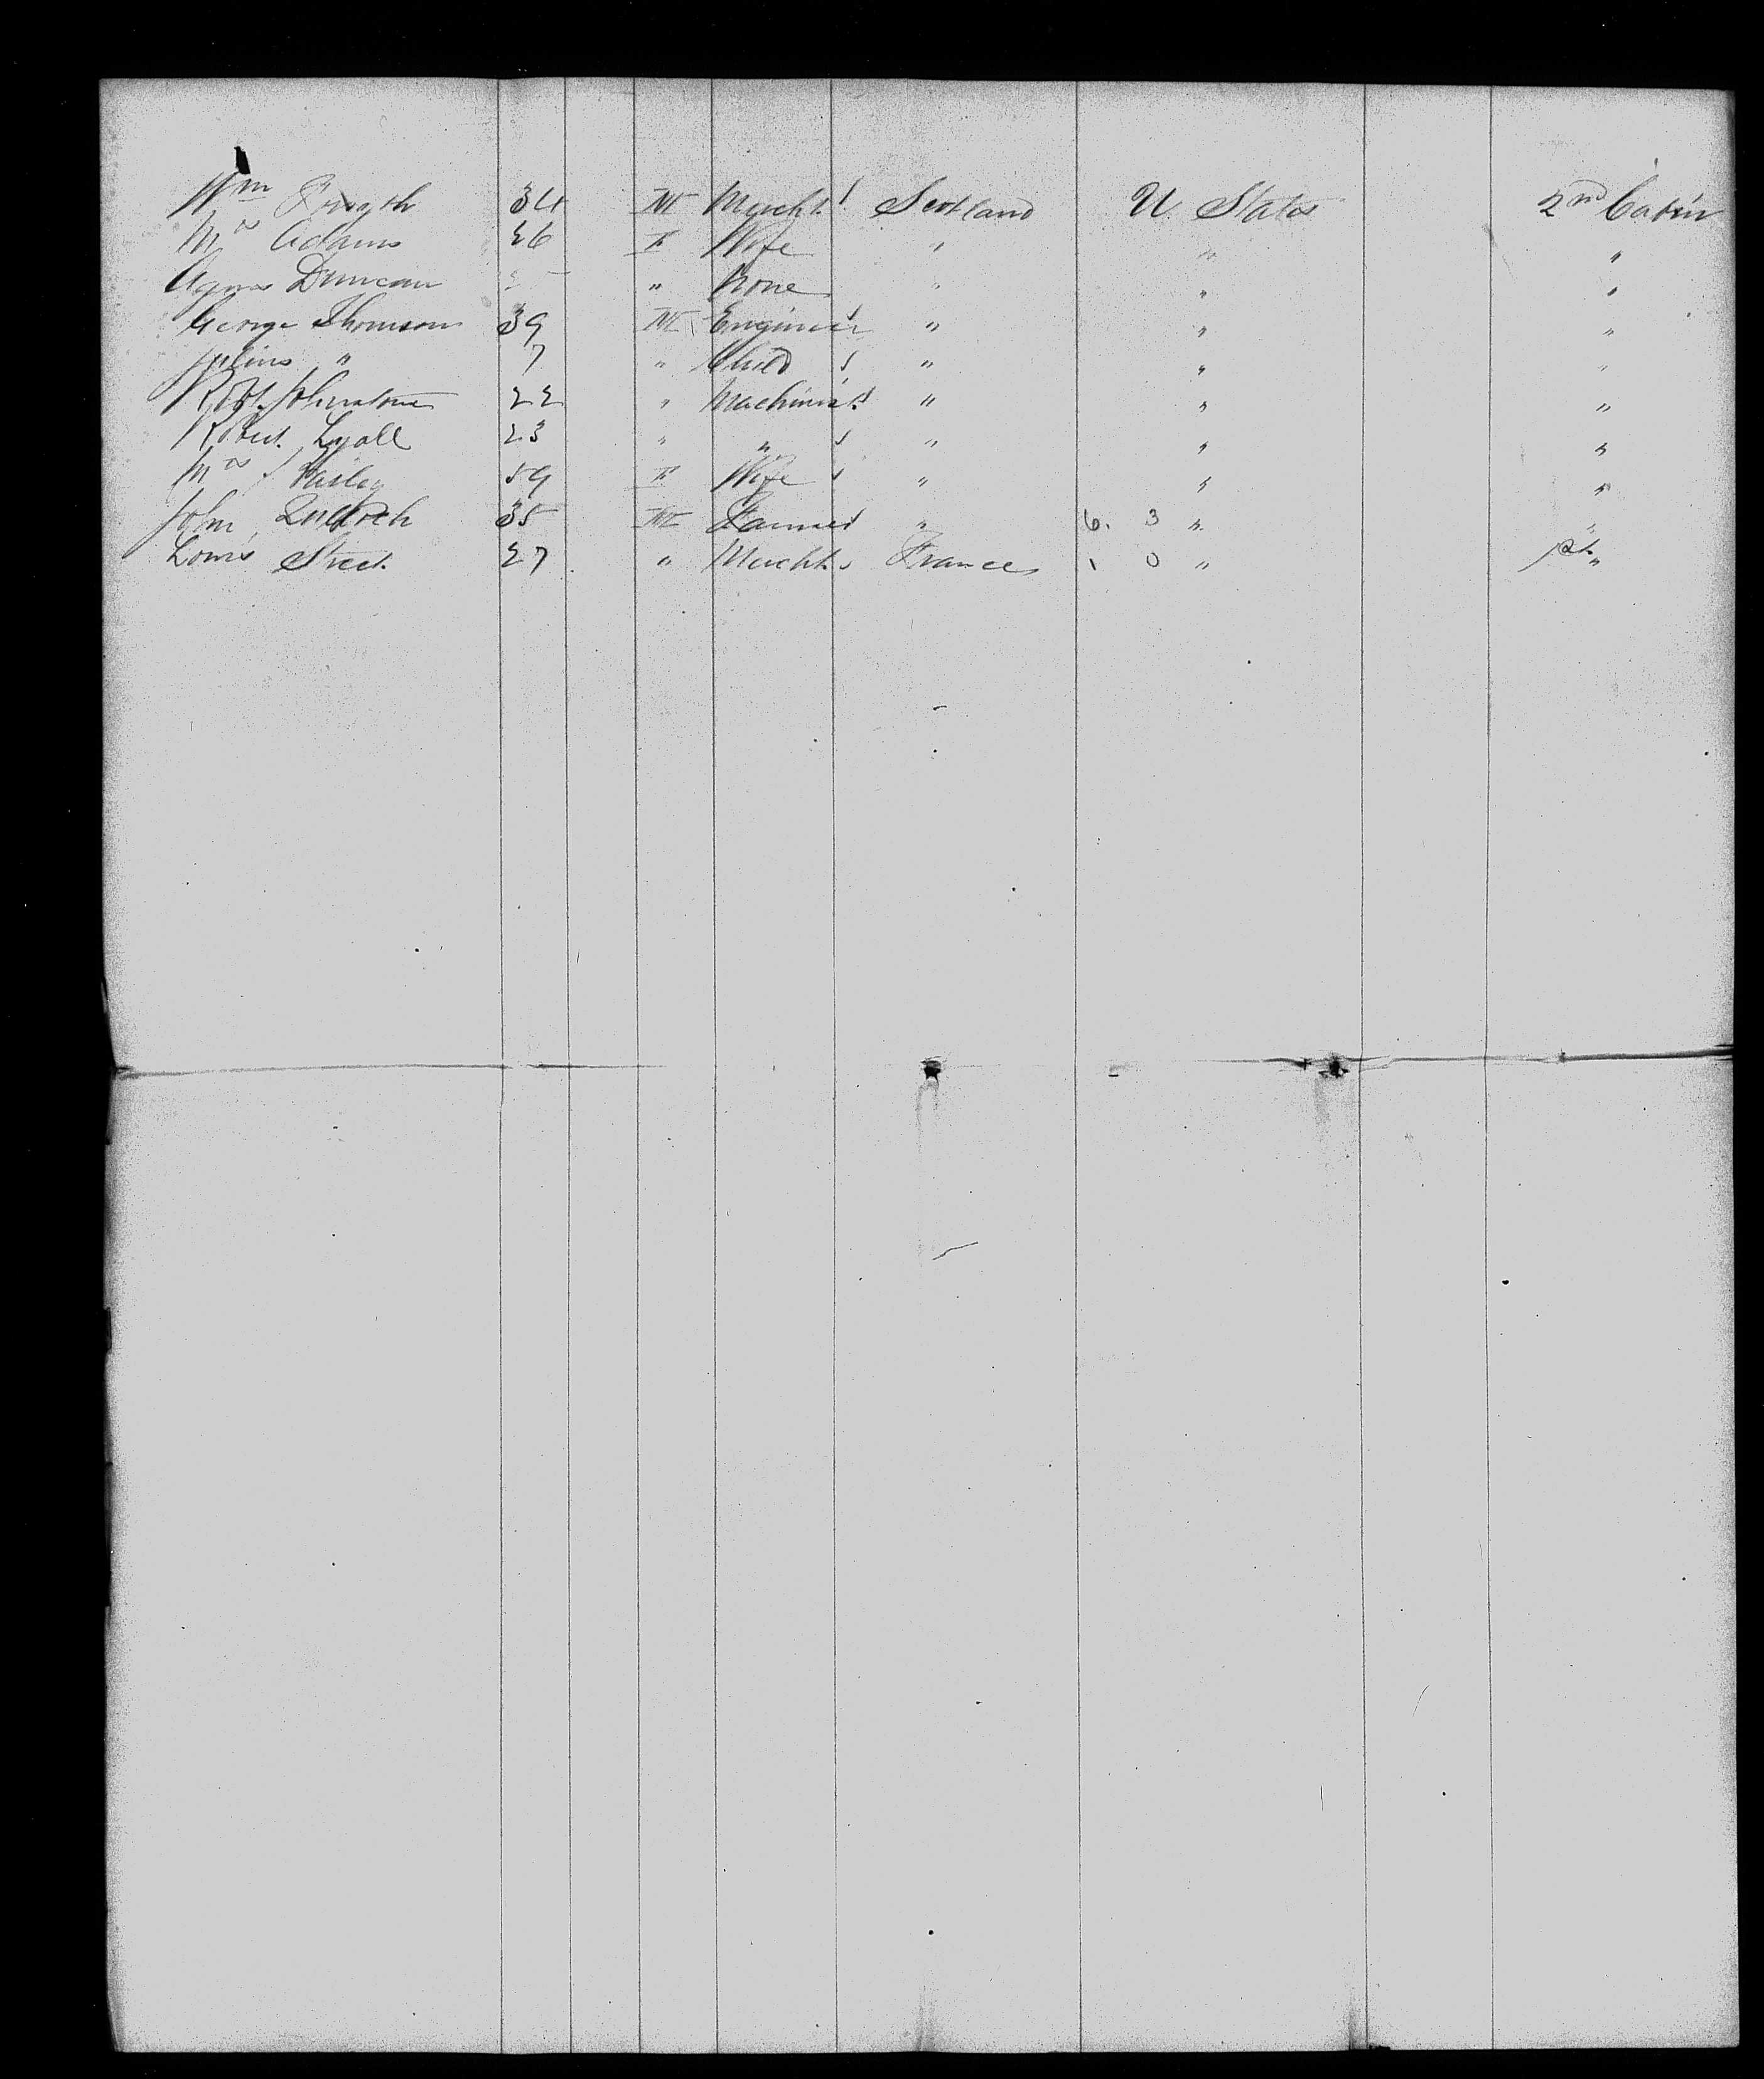 Wm Forsyth 34 M Mercht Scotland U. States 2nd Cabin
Mrs Adams 26 F Wife " " "
Agnes Duncan " None " " "
George Thomson 39 M Engineer " " "
" 7 " Child " " "
Robt. Johnstone 22 " Machinist " " "
Robert Lyall 23 " " " " "
Mrs Paisley 59 F Wife " " "
John 35 M Farmer " 6. 3 " "
Louis Street 27 " Mercht France 1 0 " 1st "